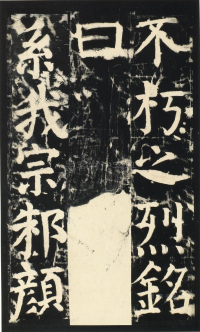 不朽之烈銘
曰
系我宗邾顔